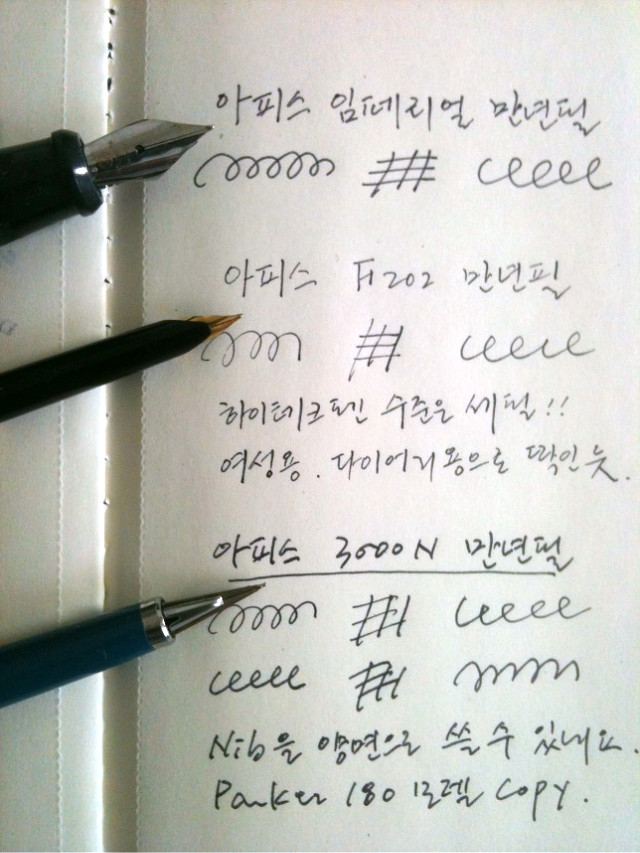 아피스 임페리얼 만년필
아피스 F1202 만년필
하이테크펜 수준은 세필!!
여성용. 다이어리용으로 딱인 듯.
아피스 3000N 만년필
Nib을 양면으로 쓸 수 있네요.
Parker 180 모델 copy.